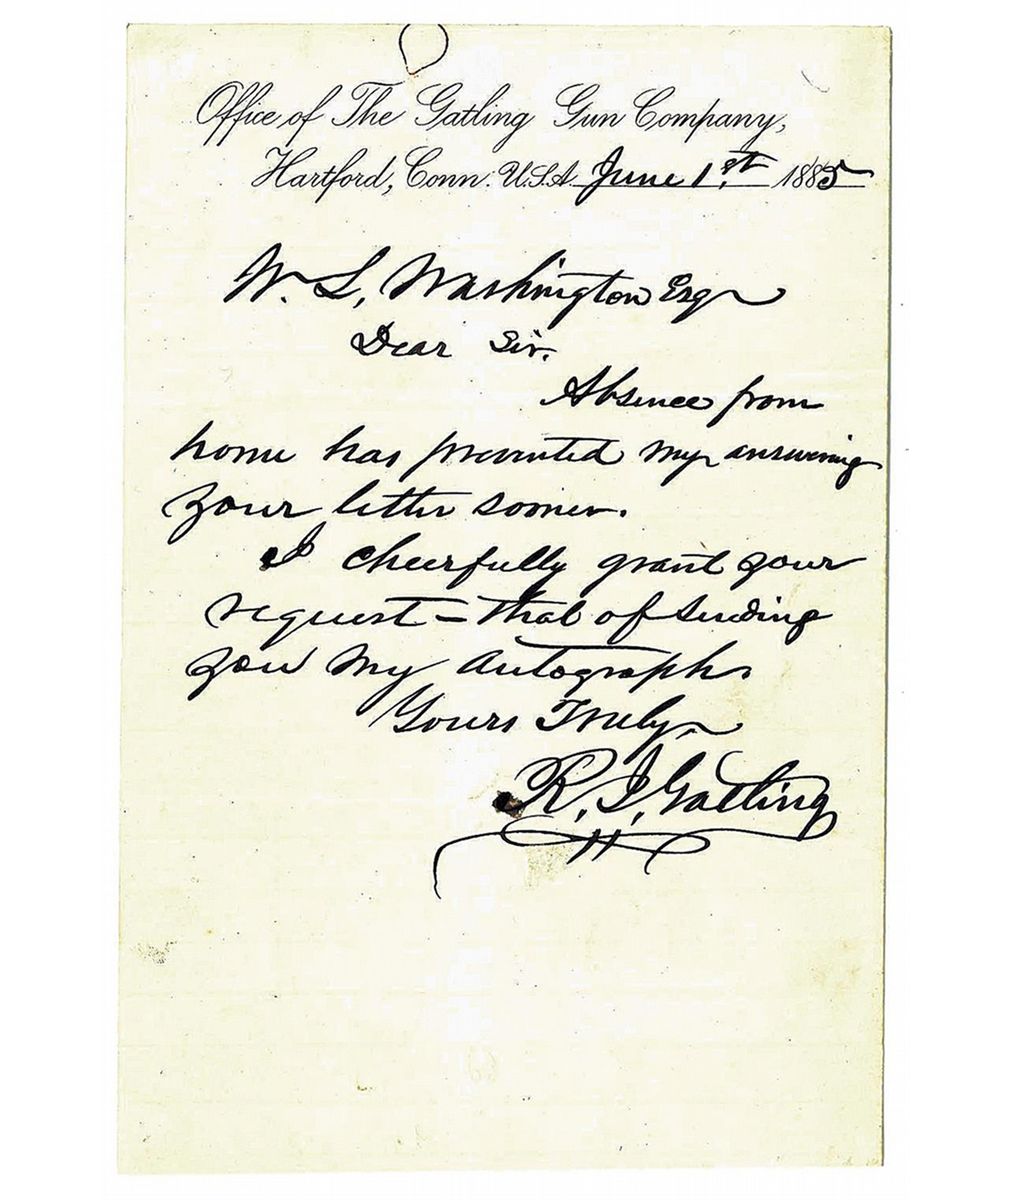 Office of The Gatling Gun Company,
Hartford, Conn. U.S.A. June 1st. 1885
W. L. Washington Esq
Dear Sir.
Absence from
home has prevented my answering
your letter sooner.
I cheerfully grant your
request = that of sending
you my autograph.
Yours Truly,
R. J. Gatling